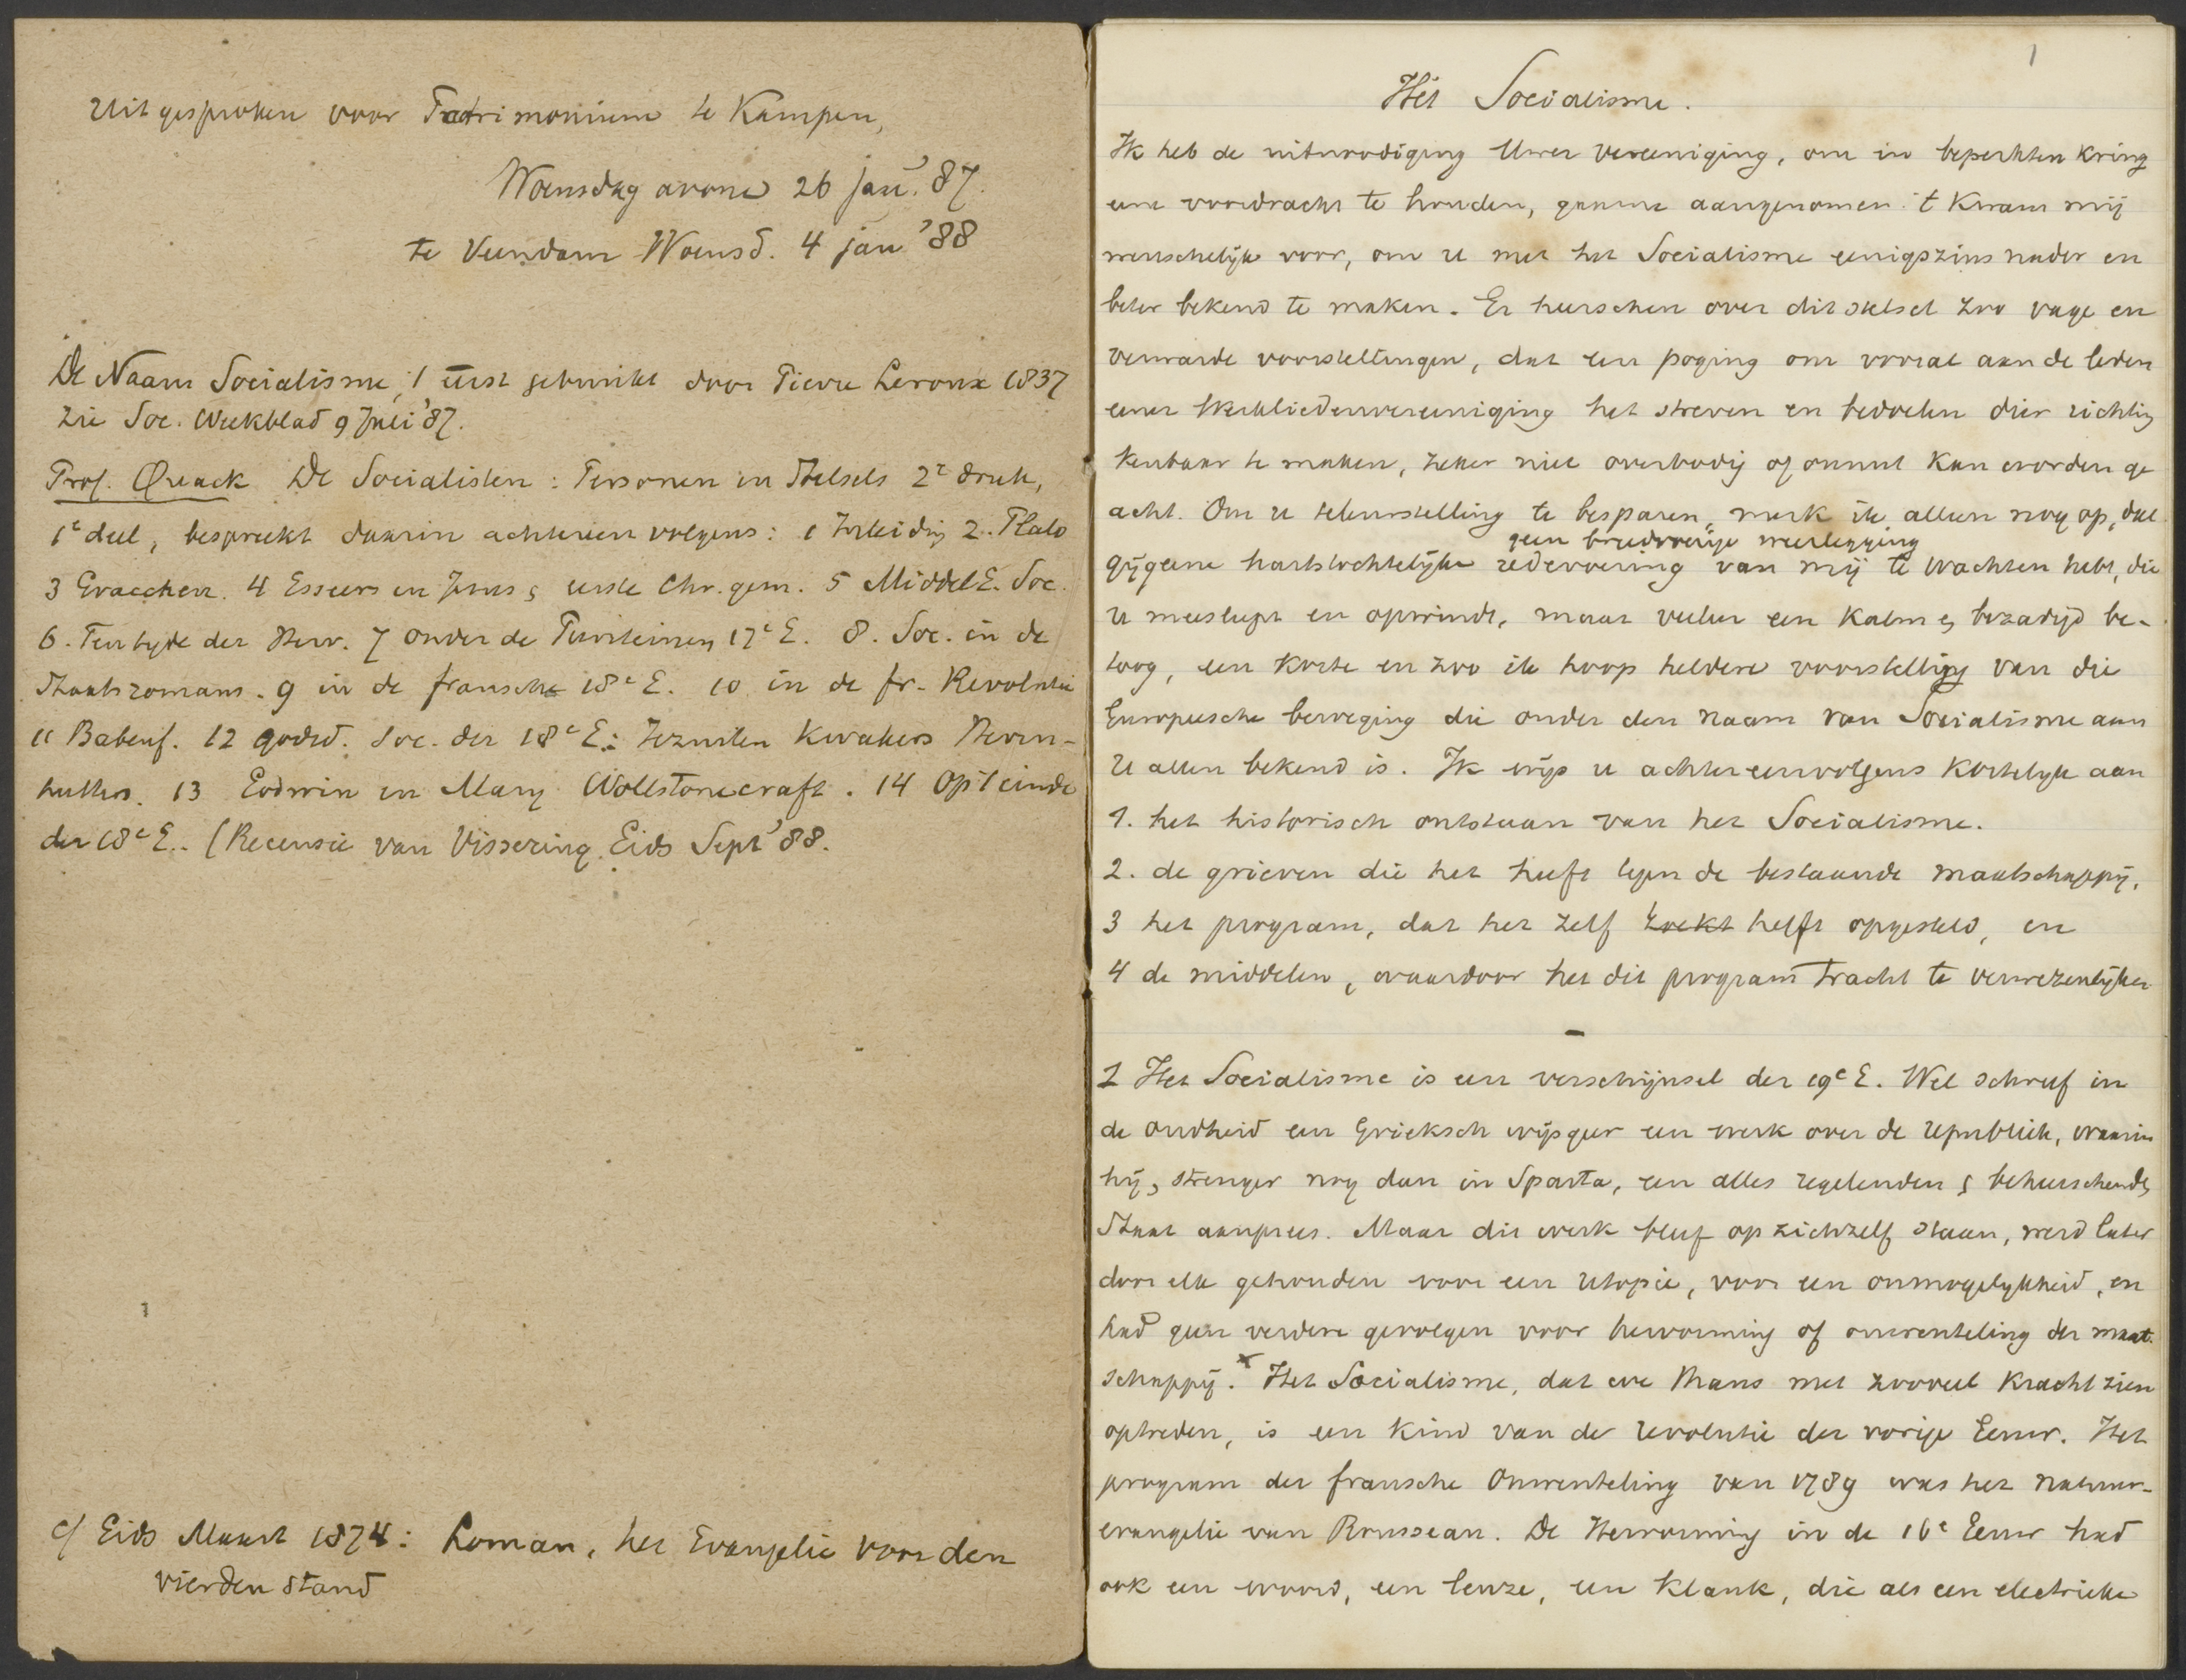 Uitgesproken voor Patrimonium te Kampen,
Woensdag avond 26 jan. '87.
te Veendam Woensd. 4 jan '88
De Naam Socialisme, 't eerst gebruikt door Pierre Leroux 1837
zie Soc. Weekblad 9 Juli '87.
Prof. Quack De Socialisten: Personen en Stelsels 2e druk,
1e deel, bespreekt daarin achtereenvolgens: 1 Inleiding 2. Plato
3 Gracchen. 4 Esseers en Jezus & eerste Chr. gem. 5 MiddelE. Soc.
6. Ten tyde der Herv. 7 onder de Puriteinen 17e E. 8. Soc. in de
Staatsromans. 9 in de fransche 18e E. 10 in de fr. Revolutie
11 Babeuf. 12 godsd. Soc. der 18e E.: Jezuiten Kwakers Hernhutters. 13 Godwin en Mary Wollstonecraft. 14 Op 't einde
der 18e E.. (Recensie van Vissering Gids Sept '88.
cf Gids Maart 1874: Loman, het Evangelie voor den
vierden stand
1
Het Socialisme.
Ik heb de uitnoodiging Uwer Vereeniging, om in beperkten kring
eene voordracht te houden, gaarne aangenomen. 't Kwam mij
wenschelijk voor, om u met het Socialisme eenigszins nader en
beter bekend te maken. Er heerschen over dit stelsel zoo vage en
verwarde voorstellingen, dat een poging om vooral aan de leden
eener Werkliedenvereeniging het streven en bedoelen dier richting
kenbaar te maken, zeker niet overbodig of onnut kan worden ge
acht. Om u teleurstelling te besparen, merk ik alleen nog op, dat
geen breedvoerige weerlegging
gij geene hartstochtelijke redevoering van mij te wachten hebt, die
u meesleept en opwindt, maar veeleer een kalm & bezadigd be-
toog, een korte en zoo ik hoop heldere voorstelling van die
Europeesche beweging die onder den naam van Socialisme aan
U allen bekend is. Ik wijs u achtereenvolgens kortelyk aan
1. het historisch ontstaan van het Socialisme.
2. de grieven die het heeft tegen de bestaande maatschappij,
3 het program, dat het zelf zoekt heeft opgesteld, en
4 de middelen, waardoor het dit program tracht te verwezenlijken
1 Het Socialisme is een verschijnsel der 19e E. Wel schreef in
de oudheid een Grieksch wijsgeer een werk over de republiek, waarin
hij, strenger nog dan in Sparta, een alles regelenden & beheerschenden
Staat aanprees. Maar dit werk bleef op zichzelf staan, werd later
door elk gehouden voor een utopie, voor een onmogelykheid, en
had geen verdere gevolgen voor hervorming of omwenteling der maat-
schappij. x Het Socialisme, dat we thans met zooveel kracht zien
optreden, is een kind van de revolutie der vorige Eeuw. Het
program der fransche Omwenteling van 1789 was het natuur-
evangelie van Rousseau. De Hervorming in de 16e Eeuw had
ook een woord, een leuze, een klank, die als een electrieke